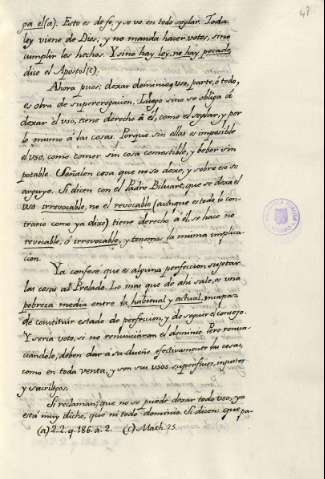 47
pa el(a). Esto es de fe, y se ve en todo seglar. Toda
ley viene de Dios, y no manda hacer votos, sino
cumplir los hechos. Y sino hay ley, no hay pecado,
dice el Apostol(c).
Ahora pues: dexar dominio, uso, parte, ó todo,
es obra de supererogacion. Luego sino se obliga á
dexar el uso, tiene derecho á él, como el seglar, y por
lo mismo á las cosas. Porque sin ellas es imposible
el uso, como comer sin cosa comestible, y beber sin
potable. Señalen cosa que no se dexe, y sobre eso se
arguye. Si dicen con el Padre Biluart, que se dexa el
uso irrevocable, no el revocable (aunque està lo con-
trario como ya dixe) tiene derecho á él, se hace no
revocable, ó irrevocable, y tenemos la misma implica-
cion.
Ya confesé, que es alguna perfeccion sujetar
las cosas al Prelado. Lo mas que de ahí sale, es una
pobreza media entre la habitual y actual, incapaz
de constituir estado de perfeccion, y de seguir el consejo.
Y sería voto, si no renunciáran el dominio. Pero renun-
ciándolo, deben dar á su dueño efectivamente las cosas,
como en toda venta, y son sus usos superfluos, injustos
y sacrílegos.
Si reclaman, que no se puede dexar todo uso, ya
está muy dicho, que ni todo dominio. Si dicen que pa-
(a) 2. 2. q. 186. a. 2. (c) Math. 25.